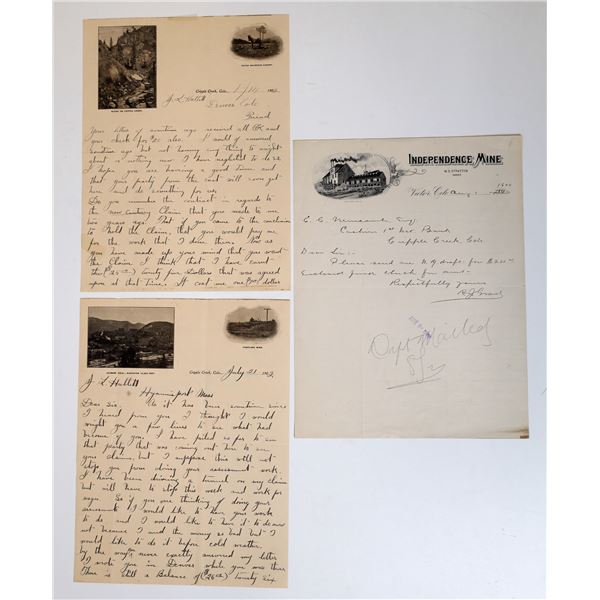 Cripple Creek, Colo., Sept 16 1902
J L Hallett
Denver Colo
Friend
Your letter of sometime ago received all OK and
your check for $20 also. I would of answered
sometime ago but not having any thing to might
about is nothing now I have neglected to do so
I hope you are having a good time, and
that your party from the east will soon get
here and do something for us.
Do you remember the contract in regards to
the new century Claim that you made to me
two years ago. that if you came to the conclusion
to hold the Claim, that you would pay me
for the work that I done there. Now as
you have made up your mind that you want
the Claim I think that I have earnt
the ($25.00) twenty five dollars that was agreed
upon at that time. It cost me one dollar
Cripple Creek, Colo., July 21 1902
J L Hallett
Hyannisport Mass
Dear Sir. As it has been sometime since
I heard from you I thought I would
wright you a few lines to see what had
become of you. I have failed so far to see
that party that was coming out here to see
your claims, but I suppose this will not
stop you from doing your assessment work.
I have been driving a tunnel on my claim
but will have to stop this week and work for
wages. So if you are thinking of doing your
assessment I would like to have your work
to do and I would like to have it to do now
not because I need the money so bad but I
would like to do it before cold weather.
by the way you never exactly answered my letter
I wrote you in Denver while you was there
There is still a Balance of ($26.00) twenty six
INDEPENDENCE MINE
W.S. STRATTON
Victor, Colo. Aug. 1900
Cashier 1st Nat Bank
Cripple Creek Colo
Dear Sir:-
Please send me N.Y. draft for
Enclosed find check for amt.
Respectfully yours
Mailed